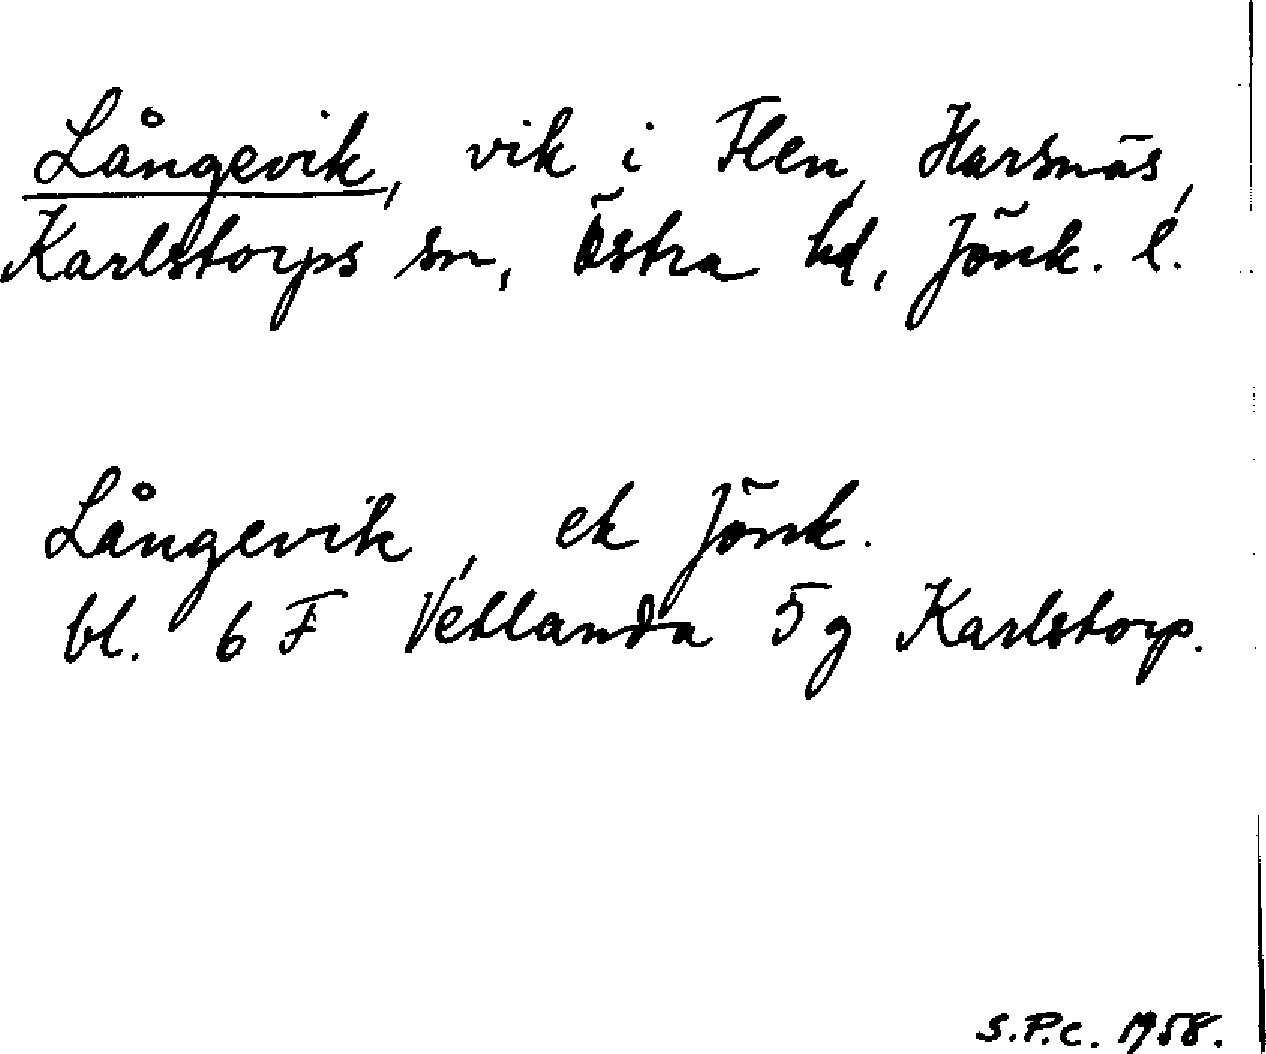 Långevik, vik i Flen, Harsnäs,
Karlstorps sn, Östra hd, Jönk. l.
Långevik, ek Jönk.
bl. 6 F Vetlanda 5 g Karlstorp.
S.P.C. 1958.